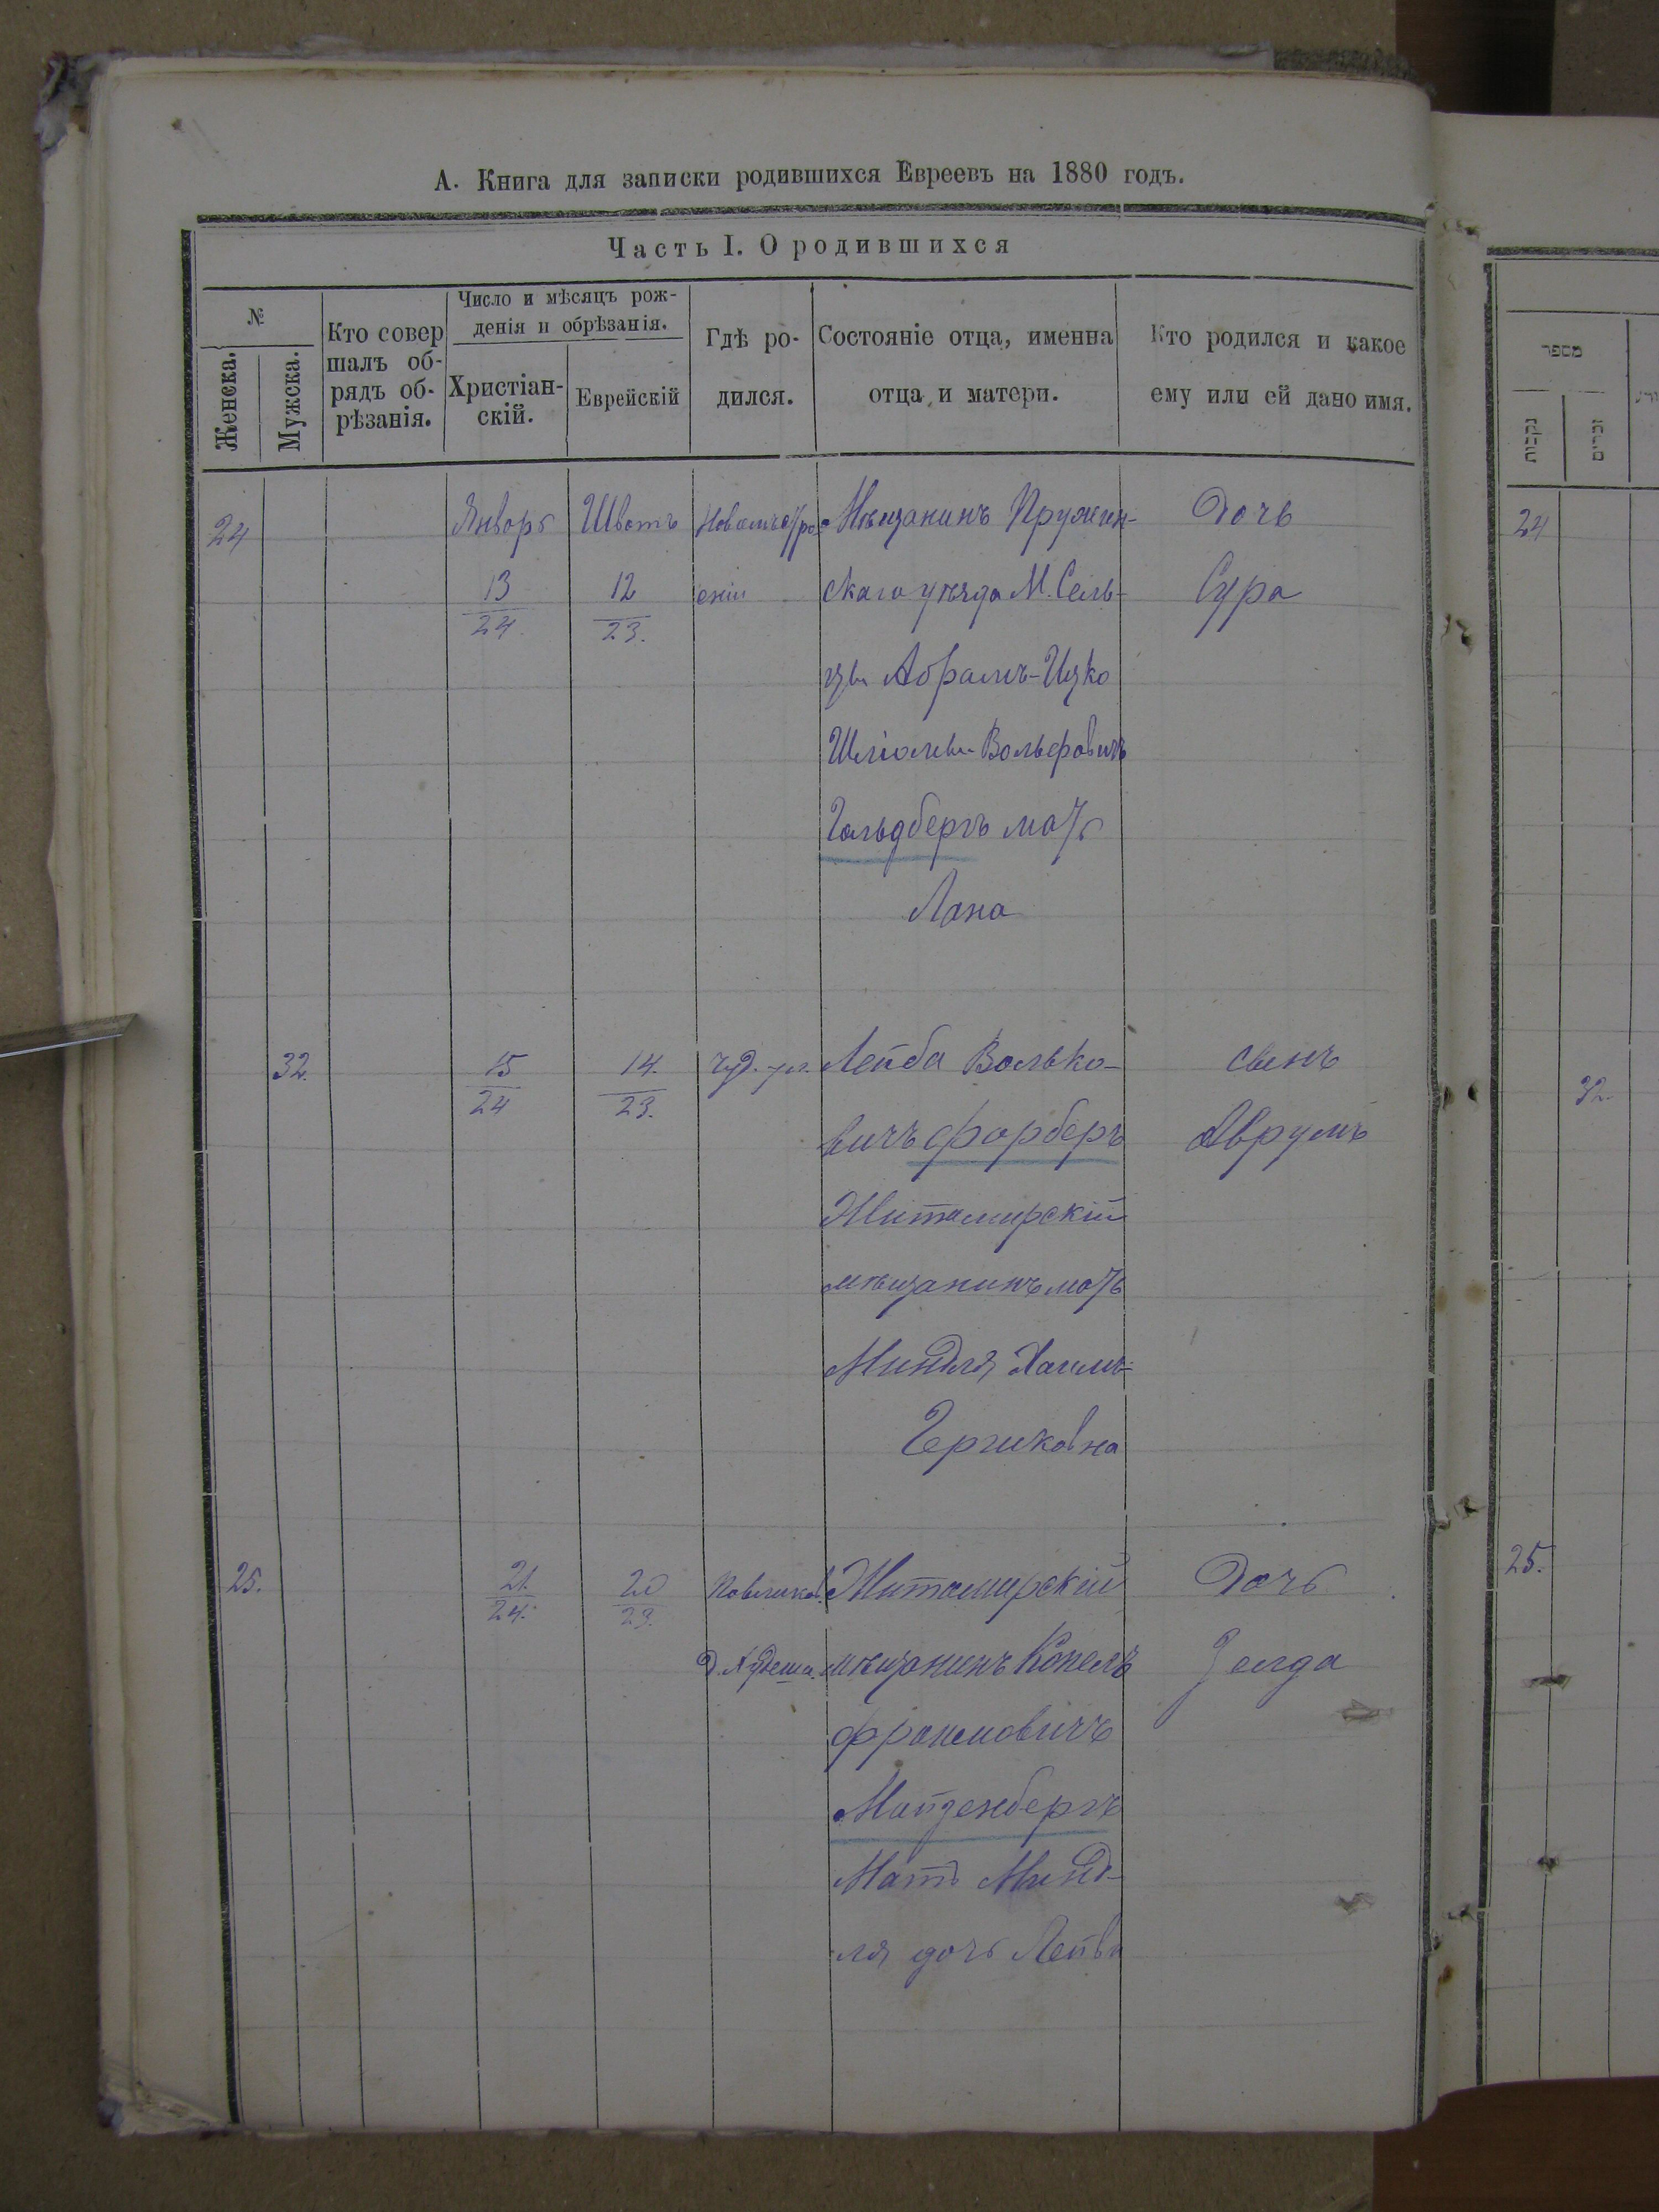 А. Книга для записки родившихся Евреевъ на 1880 годъ.
Часть I. О родившихся
№
Женска.
Мужска.
Кто совер
шалъ об-
рядъ об-
рѣзанія.
Число и мѣсяцъ рож-
денія и обрѣзанія.
Христіан-
скій.
Еврейскій
Гдѣ ро-
дился.
Состояніе отца, именна
отца и матери.
Кто родился и какое
ему или ей дано имя.
24
Январь
13
24.
Шватъ
12
23.
Мѣщанинъ Пружан-
скаго уѣзда М. Сель-
цы Абрамъ-Ицко
Вольфовичъ
Гольдбергъ мать
Лана
Дочь
Сура
32.
15
24
14.
23.
Лейба Волько-
вичъ Фарберъ
Житомирскій
мѣщанинъ мать
Миндля Хаимъ-
Гершковна
сынъ
Аврумъ
25.
21.
24.
20
23.
Житомирскій
мѣщанинъ Копель
Фроимовичъ
Майзенбергъ
Мать Минд-
ля дочь Лейби
Дочь
Зелда
מספר
נקבות
זכרים
24
32.
25.